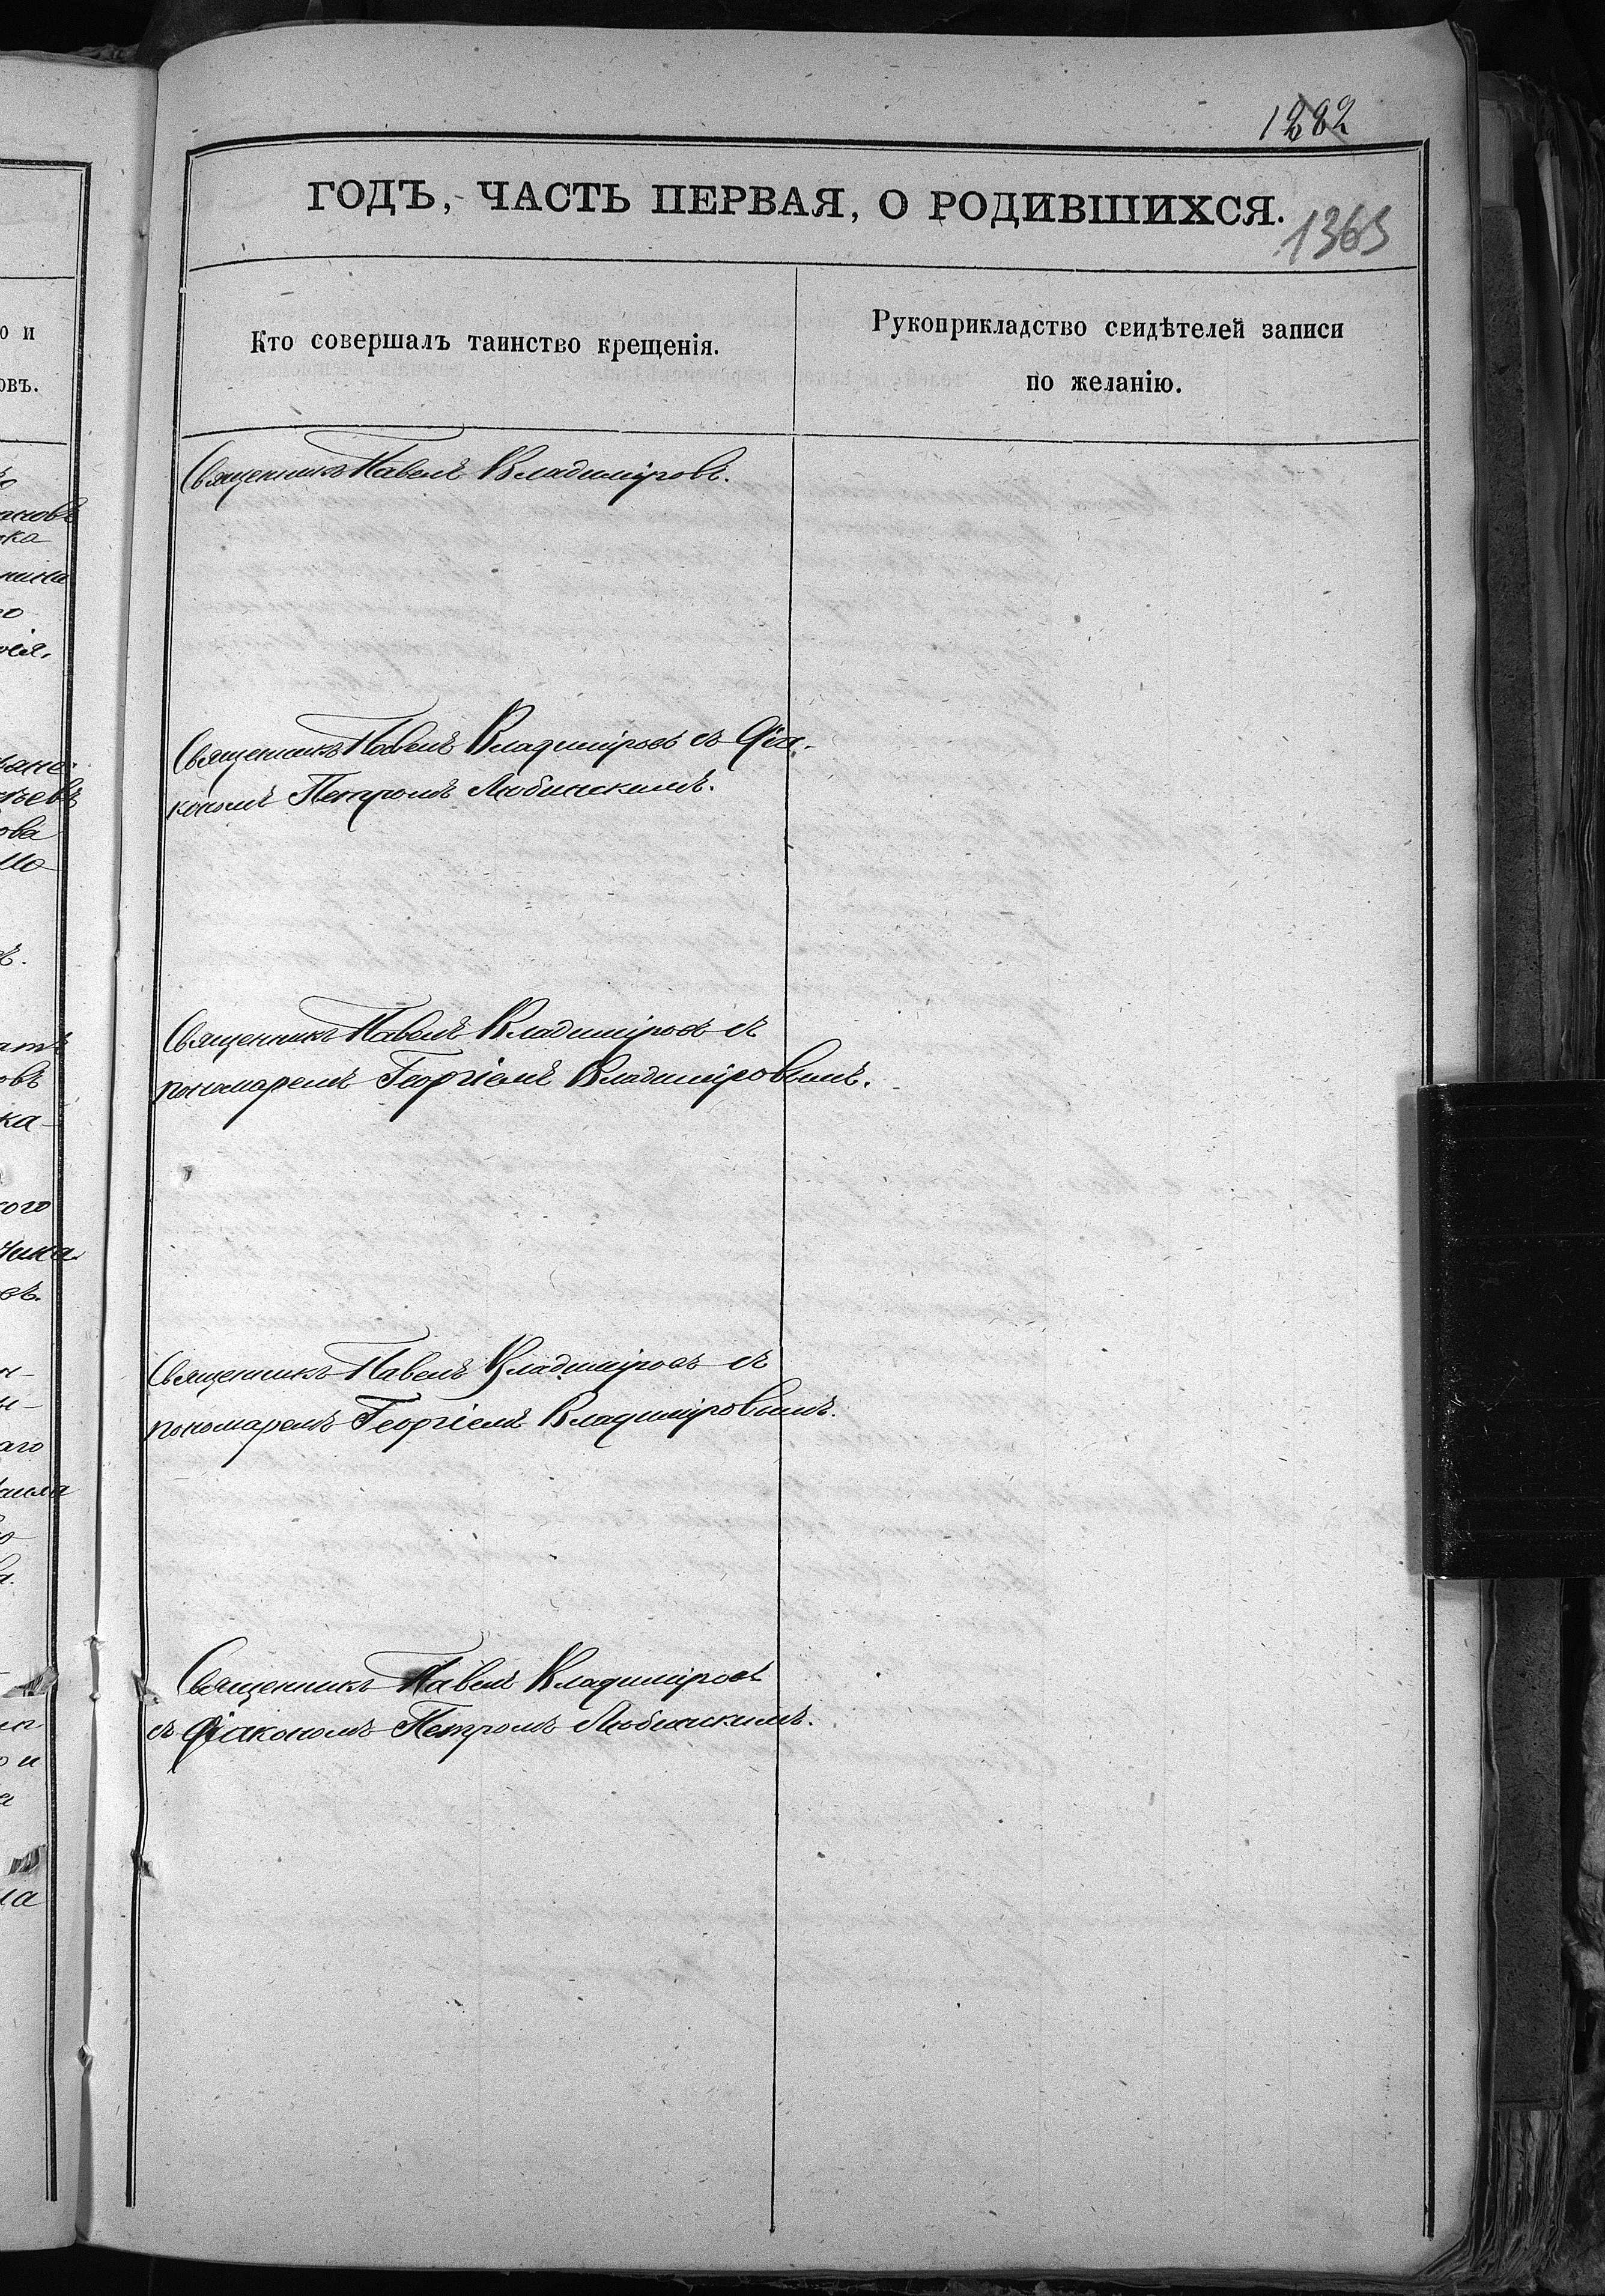 1282
ГОДЪ, ЧАСТЬ ПЕРВАЯ, О РОДИВШИХСЯ.
1363
Кто совершалъ таинство крещенія.
Рукоприкладство свидѣтелей записи
по желанію.
Священникъ Павелъ Владиміровъ.
Священникъ Павелъ Владиміровъ съ Діа-
кономъ Петромъ Любинскимъ.
Священникъ Павелъ Владиміровъ съ
пономаремъ Георгіемъ Владиміровымъ.
Священникъ Павелъ Владиміровъ съ
пономаремъ Георгіемъ Владиміровымъ.
Священникъ Павелъ Владиміровъ
съ Діакономъ Петромъ Любинскимъ.